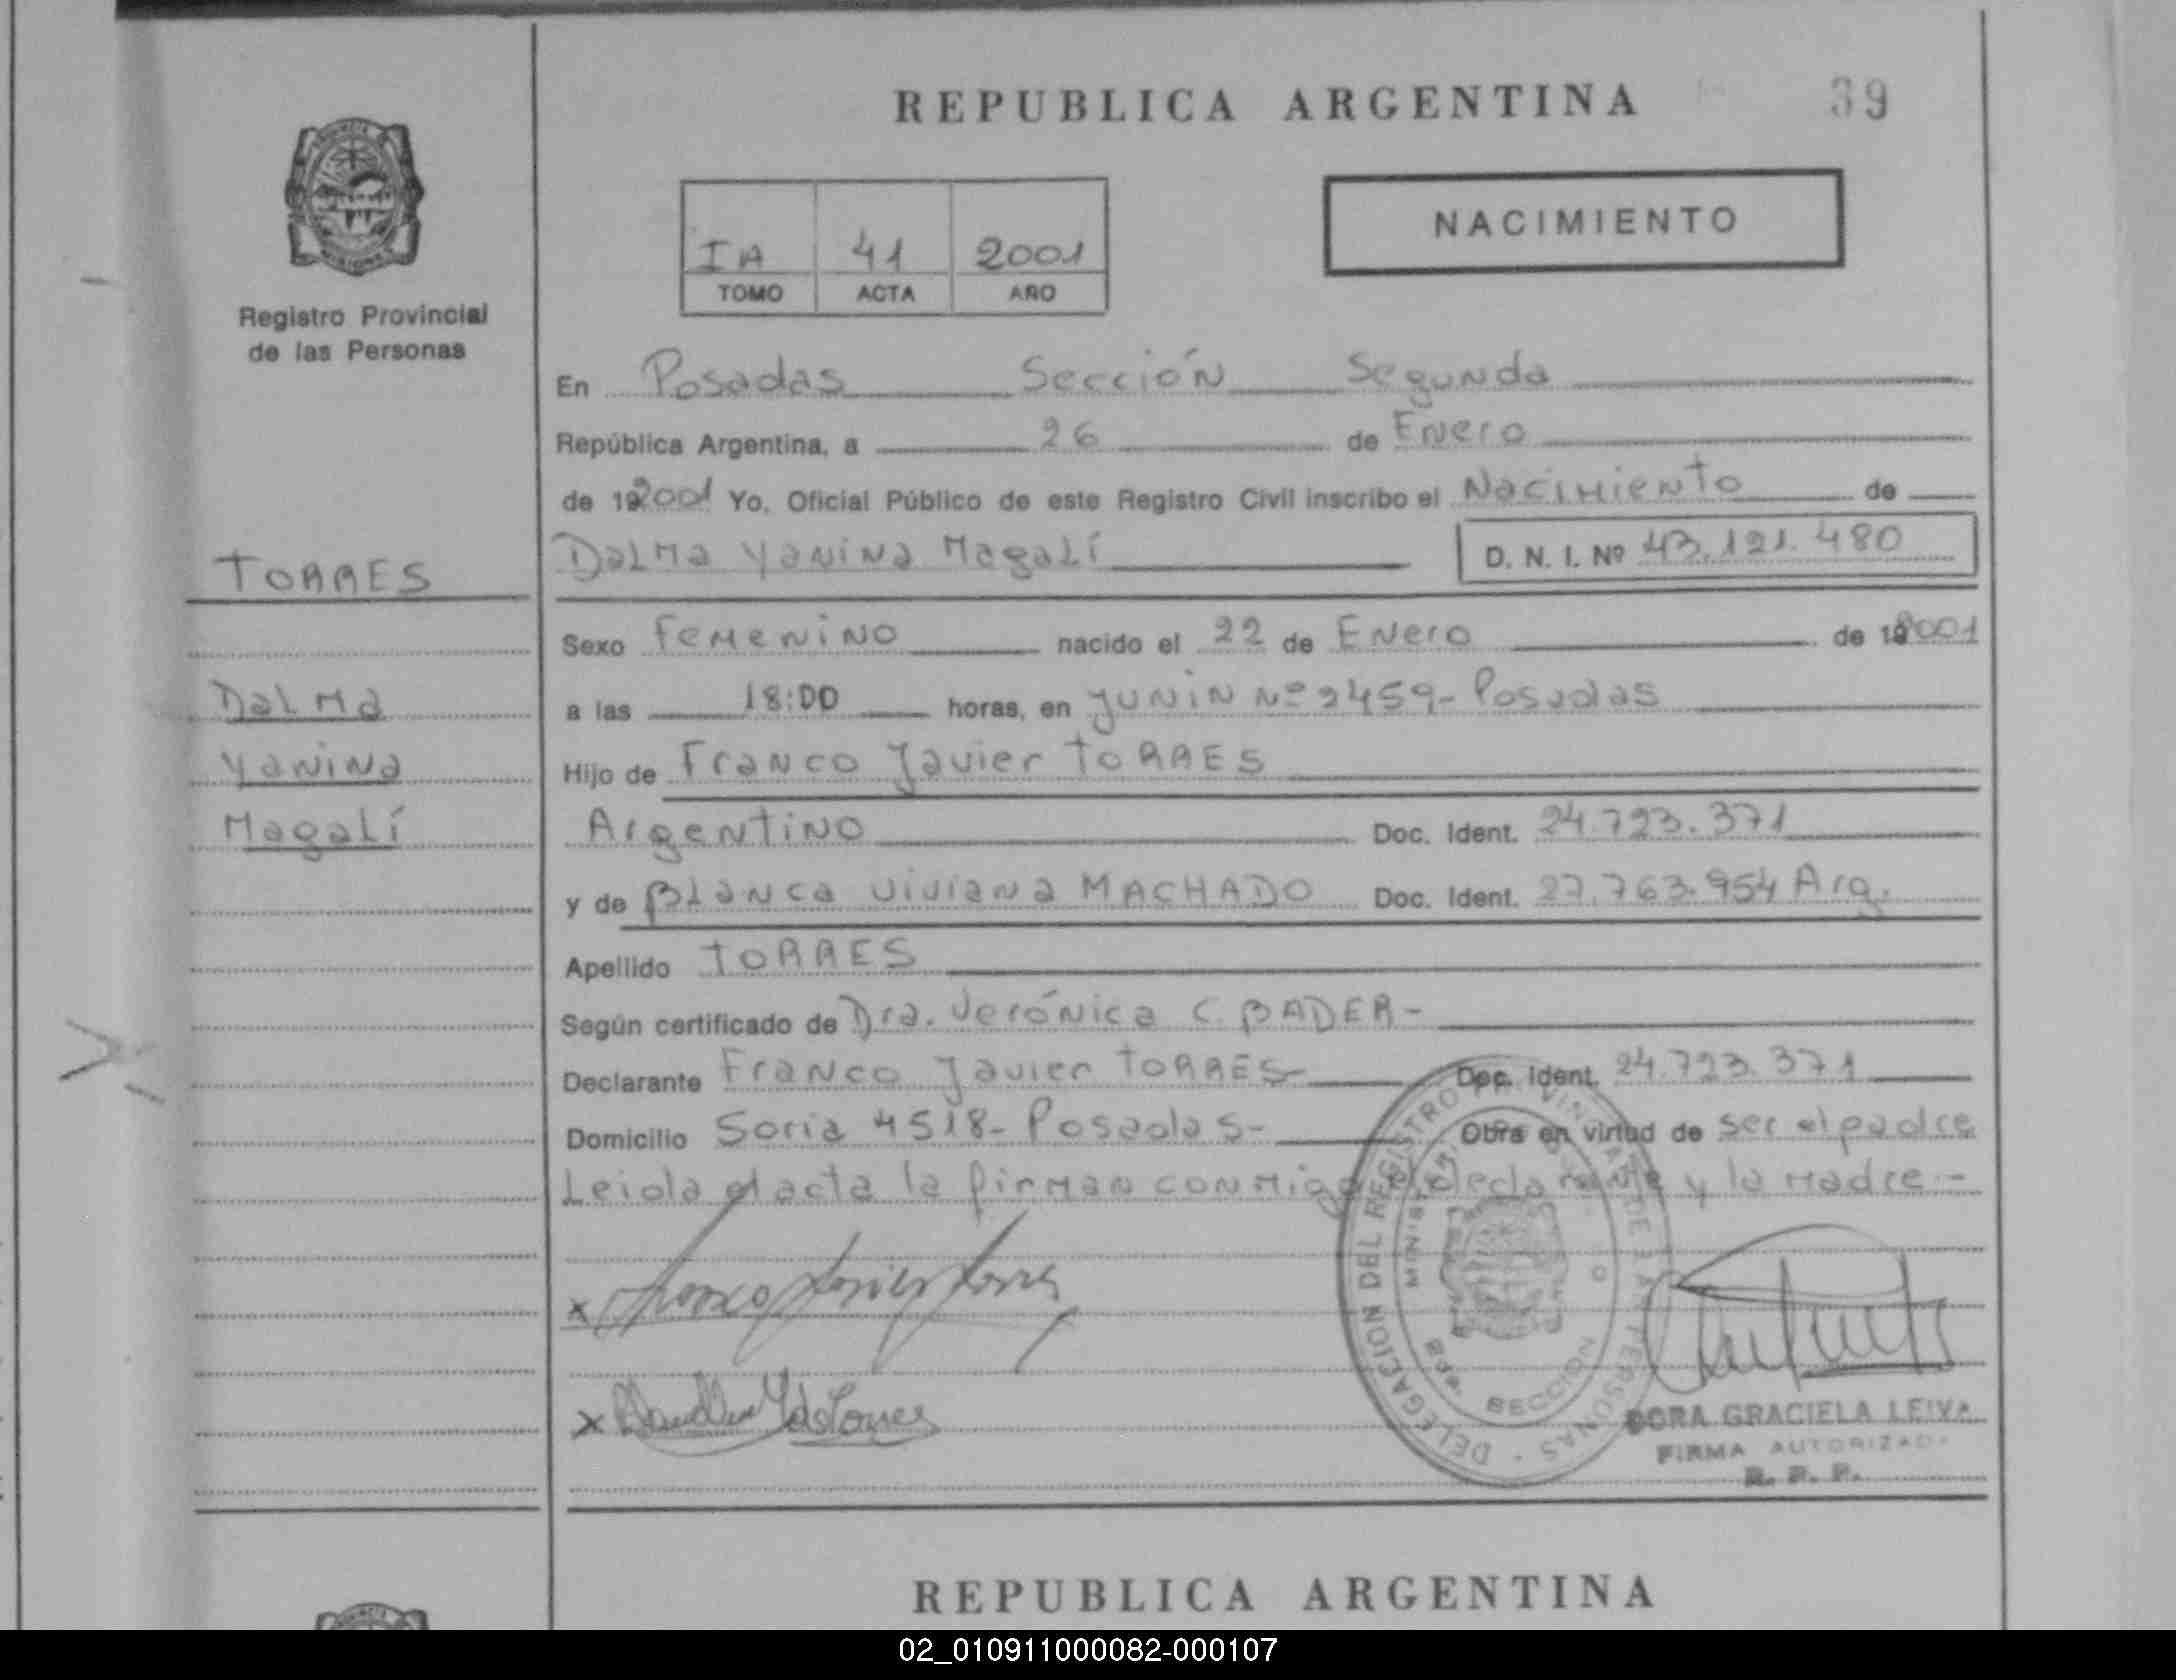 REPUBLICA ARGENTINA
39
NACIMIENTO
IA 41 2001
TOMO ACTA AÑO
Registro Provincial
de las Personas
En Posadas Sección Segunda
República Argentina, a 26 de Enero
de 192001 Yo, Oficial Público de este Registro Civil inscribo el Nacimiento de
TORRES
Dalma Yanina Magalí D. N. I. Nº 43.121.480
Sexo Femenino nacido el 22 de Enero de 192001
Dalma
a las 18:00 horas, en Junin Nº 2459- Posadas
Yanina
Hijo de Franco Javier TORRES
Magalí
Argentino Doc. Ident. 24.723.371
y de Blanca Viviana MACHADO Doc. Ident. 27.763.954 Arg.
Apellido TORRES
Según certificado de Dra. Verónica C. BADER-
Declarante Franco Javier TORRES- Doc. Ident. 24.723.371
Domicilio Soria 4518- Posadas- Obra en virtud de ser el padre
Leida el acta la firman conmigo el declarante y la madre-
DELEGACION DEL REGISTRO PROVINCIAL DE LAS PERSONAS
2da. SECCION
x Franco Javier Torres
x
DORA GRACIELA LEIVA
FIRMA AUTORIZADA
R. P. P.
REPUBLICA ARGENTINA
02_010911000082-000107